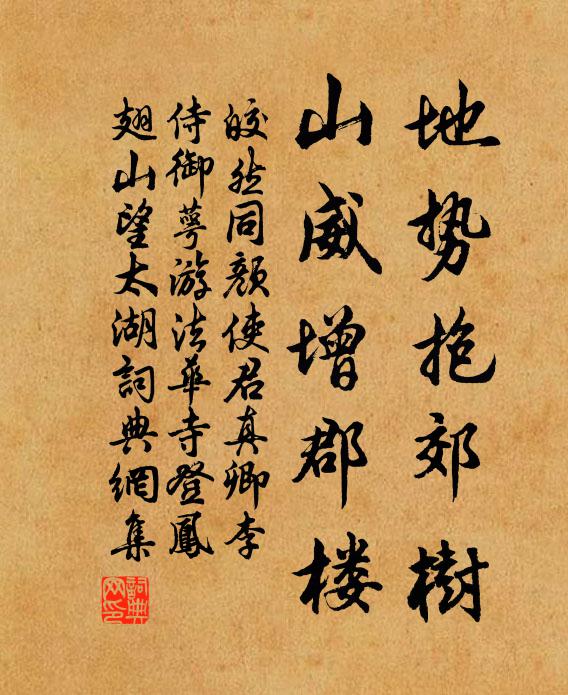 地势抱郊树
山威增郡楼
皎然同颜使君真卿李
侍御萼游法华寺登鳳
翅山望太湖詞典網集
詞典網印